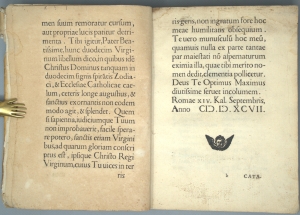 men suum remoratur cursum,
aut propriae lucis patitur detri
menta. Tibi igitur, Pater Bea-
tissime, hunc duodecim Virgi-
num libellum dico, in quibus idē
Christus Dominus tanquam in
duodecim signis spiratis Zodia-
ci, & Ecclesiae Catholicae cae-
lum, ceteris longe augustius, &
sanctius exornantis non eodem
modo agit, & splendet. Quem
si sapientia, iudiciumque Tuum
non improbauerit, facile spera-
re potero, sanctis etiam Virgini
bus, ad quarum gloriam conscri
ptus est, ipsique Christo Regi
Virginum, cuius Tu uices in ter
ris
uirgeris, non ingratum fore hoc
meae humilitatis obsequium.
Te uero munusculū hoc meū,
quamuis nulla ex parte tantae
par maiestati nō aspernaturum
eximia illa, quae tibi merito no-
men dedit, clementia pollicetur.
Deus Te Optimus Maximus
diutissime seruet incolumem.
Romae XIV. Kal. Septembris,
Anno
CATA-